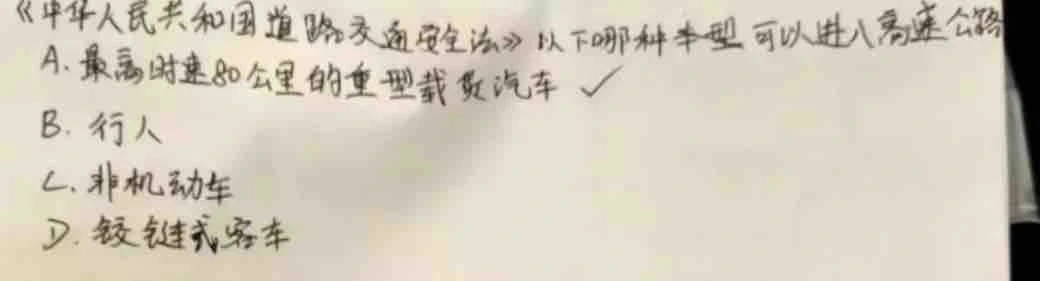 《中华人民共和国道路交通安全法》以下哪种车型可以进入高速公路
A. 最高时速80公里的重型载货汽车 ✓
B. 行人
C. 非机动车
D. 铰链式客车